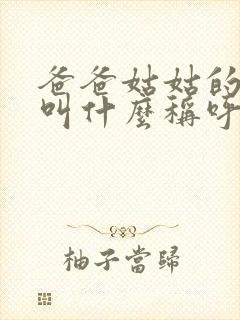 爸爸姑姑的
叫什麼稱呼
柚子當歸